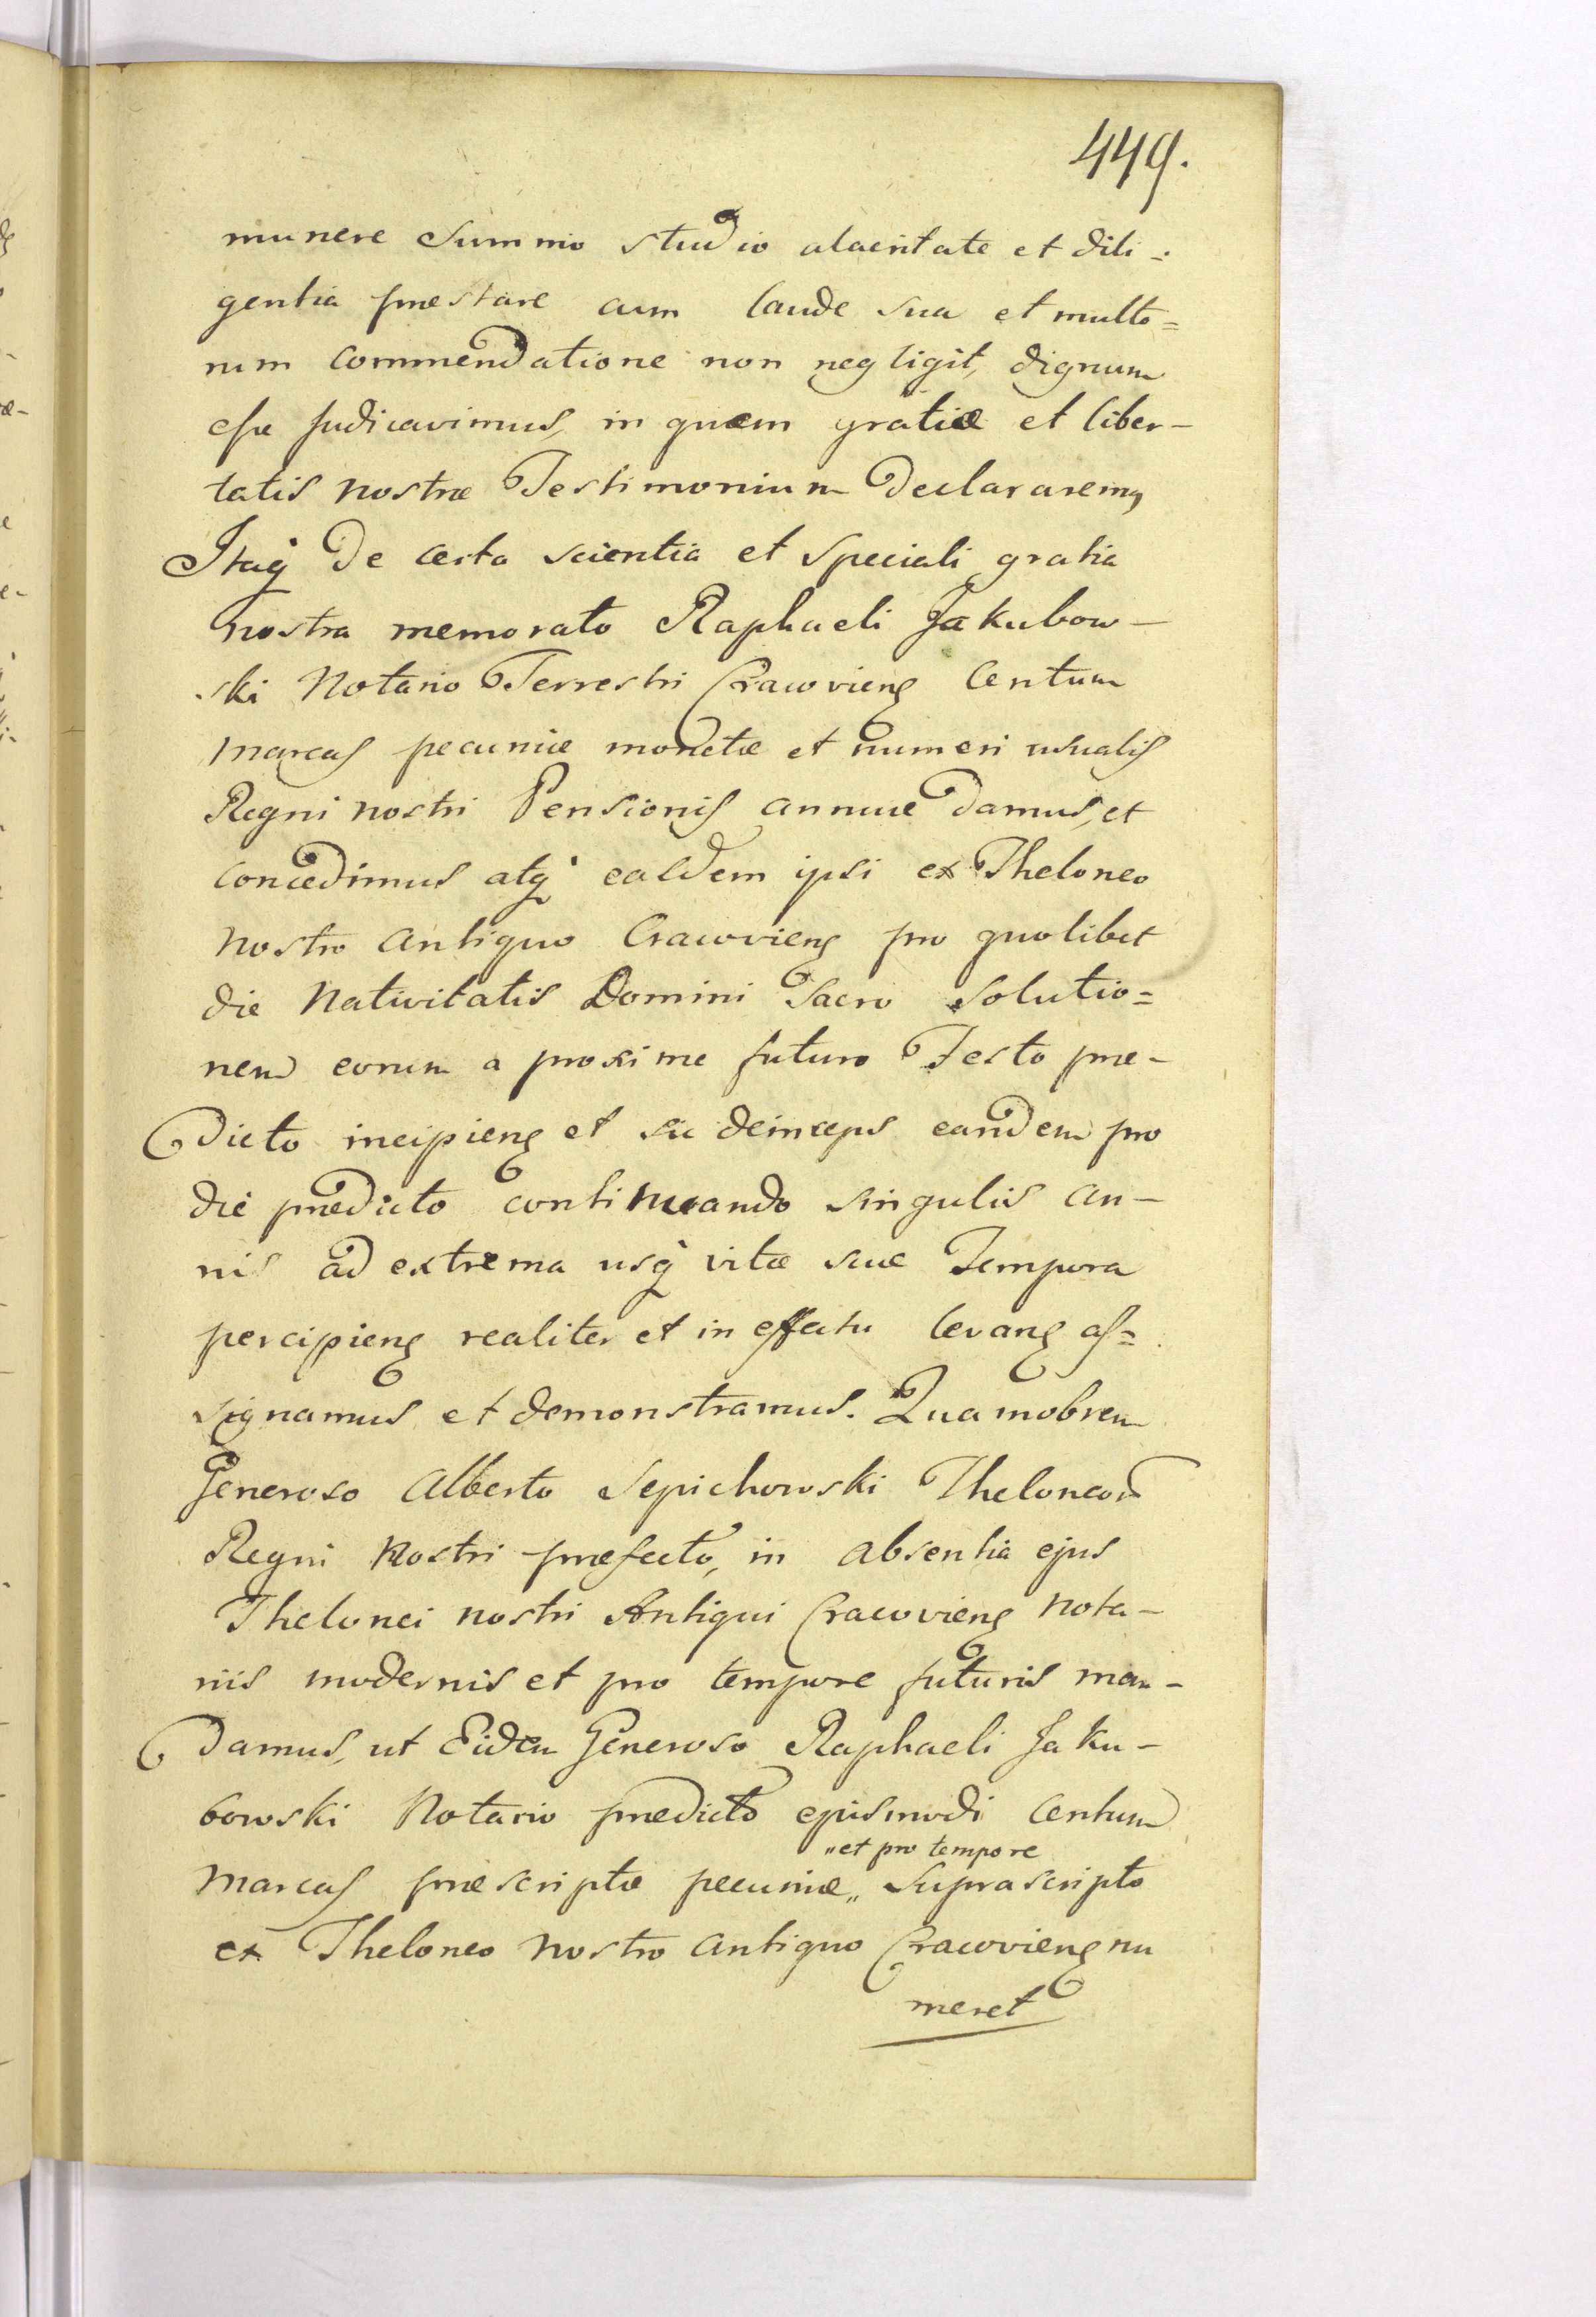 449.
munere summo studio alacritate et dili=
gentia præstare cum laude sua et multo=
rum commendatione non negligit, dignum
esse judicavimus, in quem gratiæ et liber-
tatis nostræ Testimonium declararemq
Itaq de certa scientia et speciali gratia
nostra memorato Raphaeli Jakubow-
ski Notario Terrestri Cracovieng Centum
marcas pecuniæ monetæ et numeri usualis
Regni nostri Pensionis annuæ damus, et
concedimus atq easdem ipsi ex Theloneo
nostro antiquo Cracovieng pro quolibet
die Nativitatis Domini Sacro solutio=
nem eorum a proxime futuro Festo præ-
dicto incipieng et sic deinceps eandem pro
die prædicto continuando singulis an-
nis ad extrema usq vitæ suæ Tempora
percipieng realiter et in effectu levang as=
signamus et demonstramus. Quamobrem
Generoso Alberto Sepichowski Theloneor
Regni Nostri præfecto, in absentia ejus
Thelonei nostri Antiqui Cracovieng nota-
riis modernis et pro tempore futuris man-
damus, ut Eidem Generoso Raphaeli Jaku-
bowski Notario prædicto ejusmodi Centum
„et pro tempore
marcas præscriptæ pecuniæ„ suprascripto
ex Theloneo nostro antiquo Cracovieng nu
meret